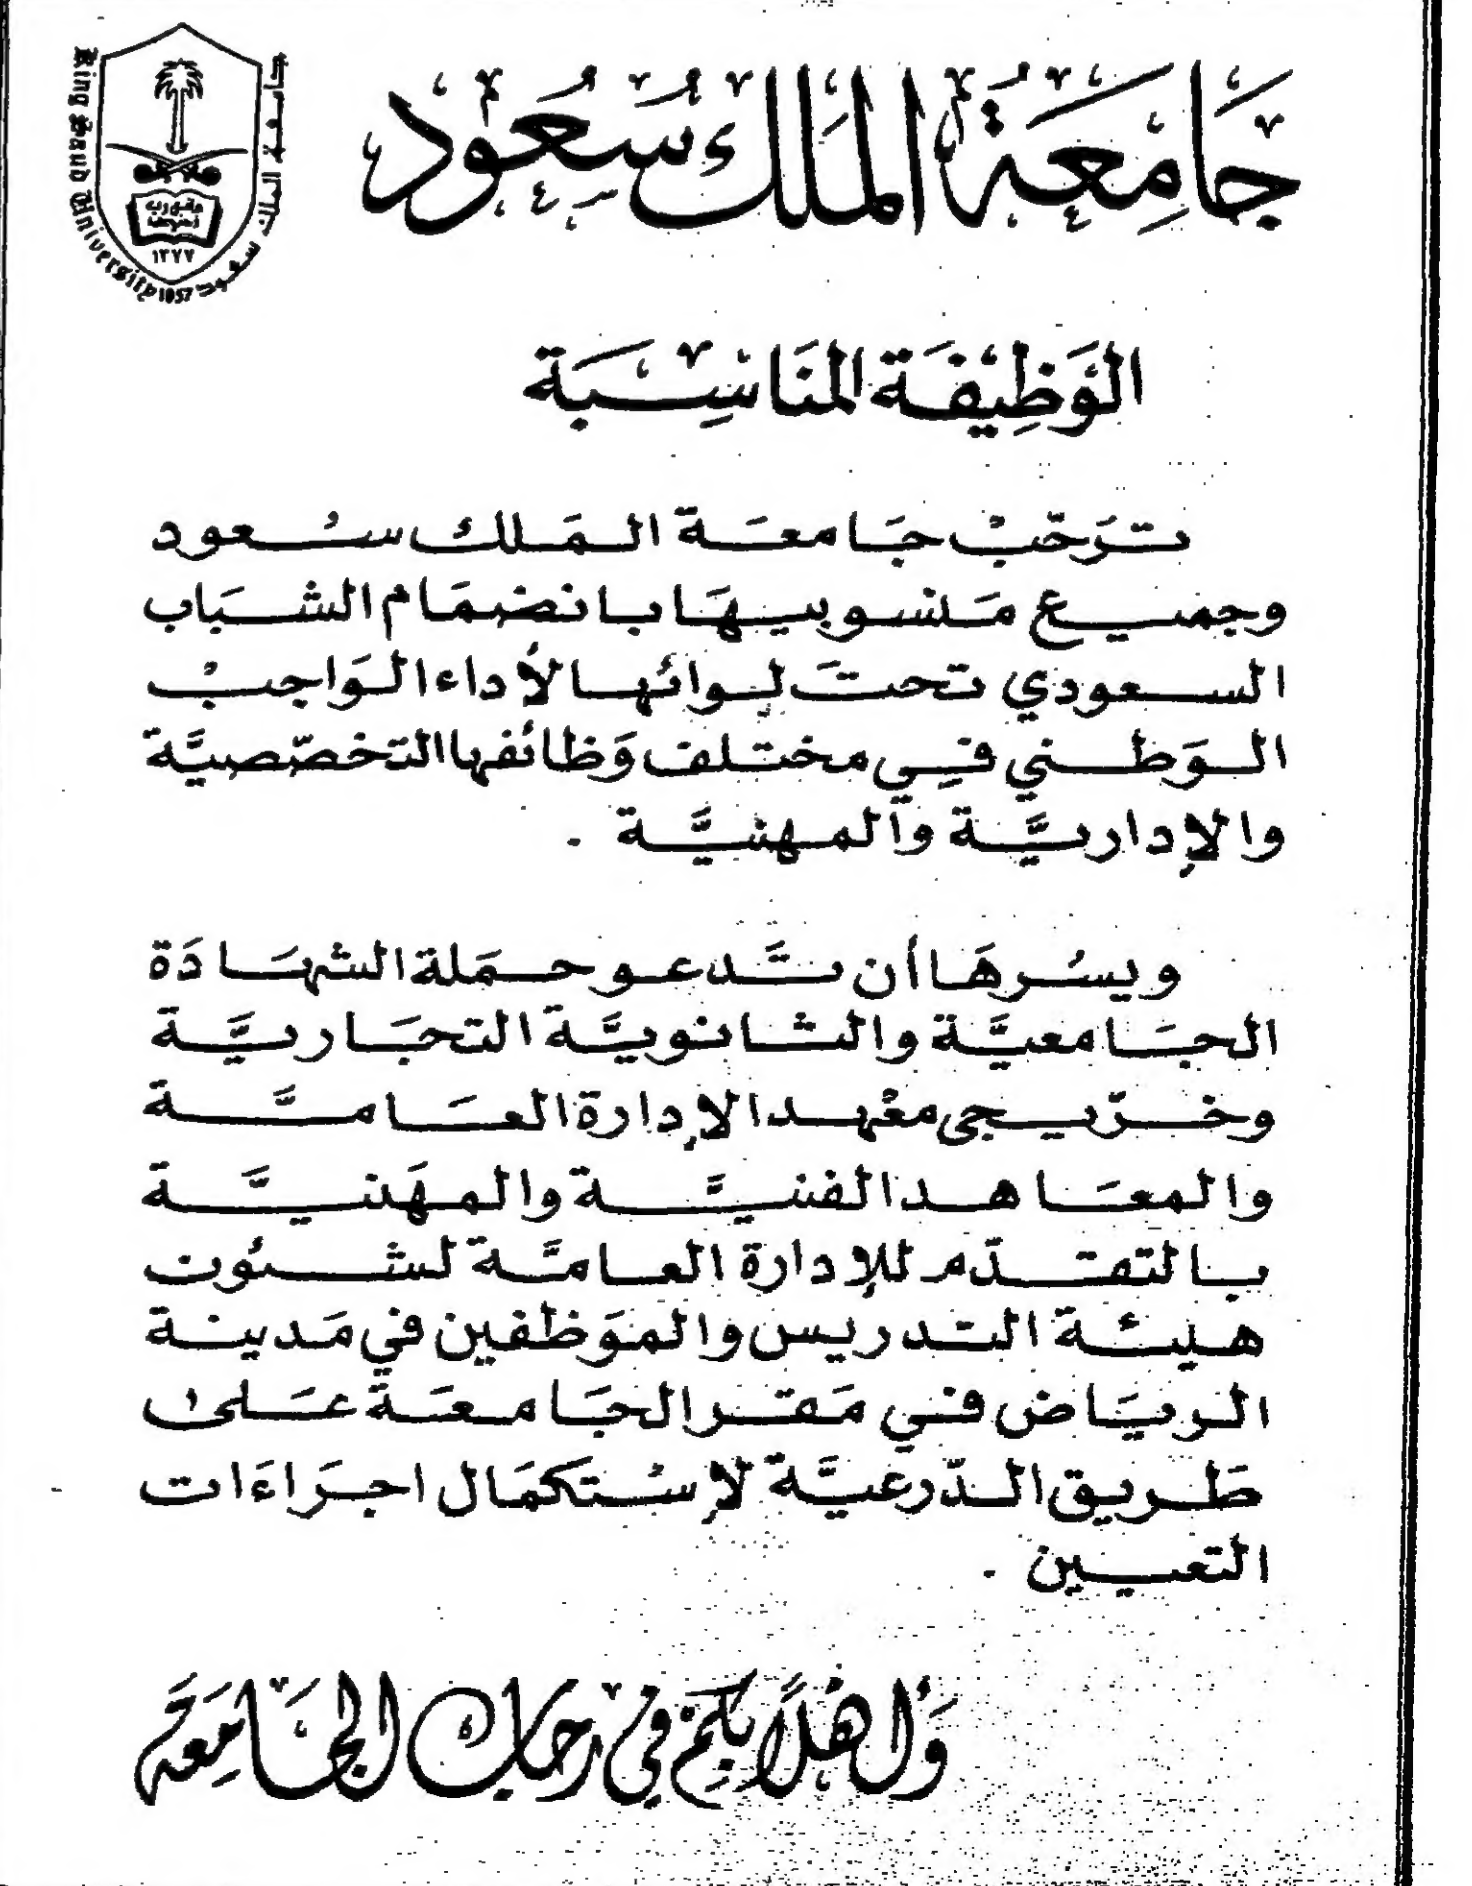 جامعة الملك سعود
King Saud University 1957
جامعة الملك سعود
١٣٧٧
الوَظِيفَة المنَاسِبَة
ترَحّبْ جَامعَة المَلك سُعود
وجميع مَنسوبيهَا بانضمَام الشبَاب
السعودي تحتَ لوائها لأداء الوَاجبْ
الوَطني في مختلف وَظائفها التخصّصيَّة
والإداريَّة والمهنيَّة .
ويسُرهَا أن تَدعو حمَلة الشهَادَة
الجَامعيَّة والثانويَّة التجَاريَّة
وخرّيجى معْهد الإدارة العَامَّة
والمعَاهد الفنيَّة والمهَنيَّة
بالتقدّم للإدارة العامَّة لشئون
هيئة التدريس والموَظفين في مَدينة
الريَاض في مَقر الجَامعَة عَلى
طَريق الدّرعيَّة لإستكمَال اجرَاءَات
التعيين .
وَأهلاً بكم في رحاب الجَامعَة